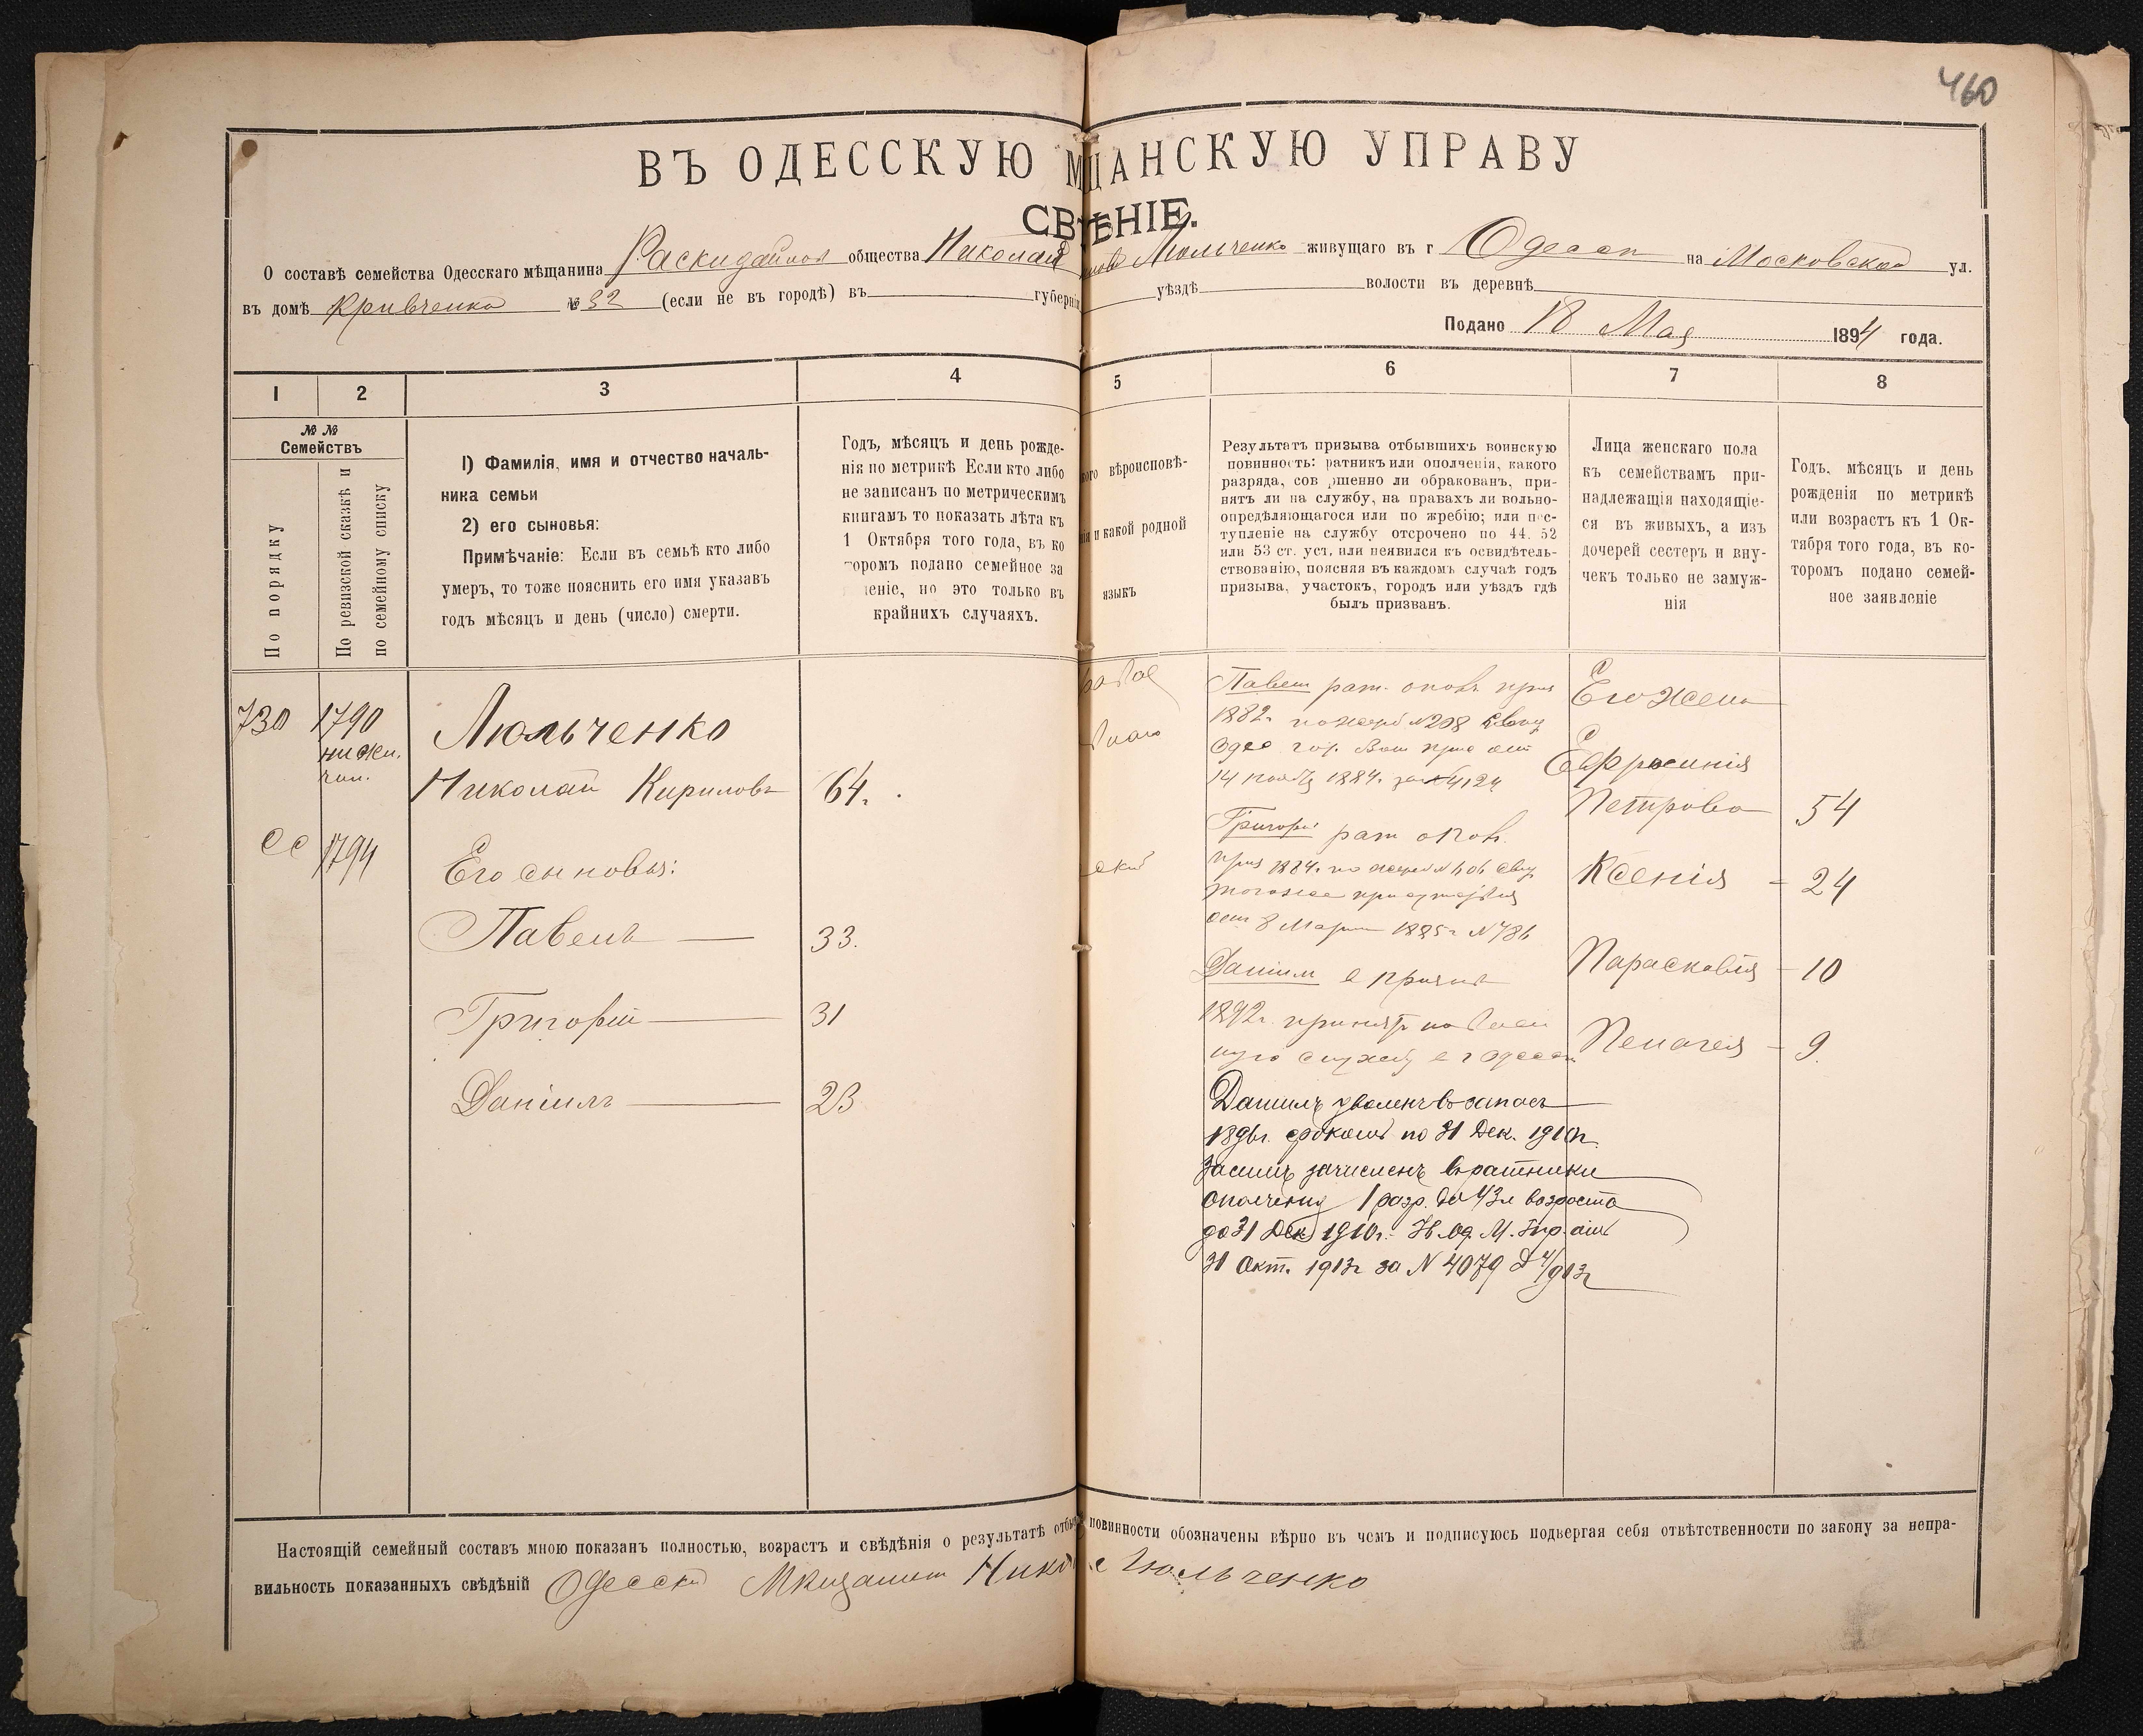 460
ВЪ ОДЕССКУЮ М ЩАНСКУЮ УПРАВУ
СВ ѢНІЕ.
О составѣ семейства Одесскаго мѣщанина Раскидайлов общества Николай Люльченко живущаго въ г Одессѣ на Московской ул.
въ домѣ Кривченко № 32 (если не въ городѣ) въ губерні уѣздѣ волости въ деревнѣ
Подано 18 Мая 1894 года.
1 2 3 4 5 6 7 8
№ № Семействъ
По порядку
По ревизской сказкѣ и
по семейному списку
1) Фамилія, имя и отчество началь-
ника семьи
2) его сыновья:
Примѣчаніе: Если въ семьѣ кто либо
умеръ, то тоже пояснить его имя указавъ
годъ мѣсяцъ и день (число) смерти.
Годъ, мѣсяцъ и день рожде-
нія по метрикѣ Если кто либо
не записанъ по метрическимъ
книгамъ то показать лѣта къ
1 Октября того года, въ ко
торомъ подано семейное за
леніе, но это только въ
крайнихъ случаяхъ.
кого вѣроисповѣ-
нія и какой родной
языкъ
Результатъ призыва отбывшихъ воинскую
повинность: ратникъ или ополченія, какого
разряда, сов ршенно ли обракованъ, при-
нятъ ли на службу, на правахъ ли вольно-
опредѣляющагося или по жребію; или пос-
тупленіе на службу отсрочено по 44. 52
или 53 ст. уст. или неявился къ освидѣтель-
ствованію, поясняя въ каждомъ случаѣ годъ
призыва, участокъ, городъ или уѣздъ гдѣ
былъ призванъ.
Лица женскаго пола
къ семействамъ при-
надлежащія находящіе-
ся въ живыхъ, а изъ
дочерей сестеръ и вну-
чекъ только не замуж-
нія
Годъ, мѣсяцъ и день
рожденія по метрикѣ
или возрастъ къ 1 Ок-
тября того года, въ ко-
торомъ подано семей-
ное заявленіе
730 1790
Люльченко
Николай Кириловъ 64.
1794
Его сыновья:
Павелъ 33.
Григорій 31
Даніилъ 23
Павелъ рат. ополч. приз
1882г. по жереб №208
14 1884г. за №4124
Григорій рат ополч.
приз 1884г. по жереб
тогоже присутствія
отъ 8 Марта 1885г №786
Даніилъ в призыв
1892г. принятъ на воен
ную службу в г Одессѣ
Даніилъ уволенъ въ запасъ
1896г. срокомъ по 31 Дек. 1910г.
Засимъ зачисленъ в ратники
ополченія 1 разр. до 43л возроста
до 31 Дек 1910г.
31 Окт. 1913г за N 4079
Его жена
Ефросинія
Петрова 54
Ксенія - 24
Парасковія - 10
Пелагея - 9.
Настоящій семейный составъ мною показанъ полностью, возрастъ и свѣдѣнія о результатѣ отбы повинности обозначены вѣрно въ чемъ и подписуюсь подвергая себя отвѣтственности по закону за непра-
вильность показанныхъ свѣдѣній Одесскій Мещанин Нико Люльченко